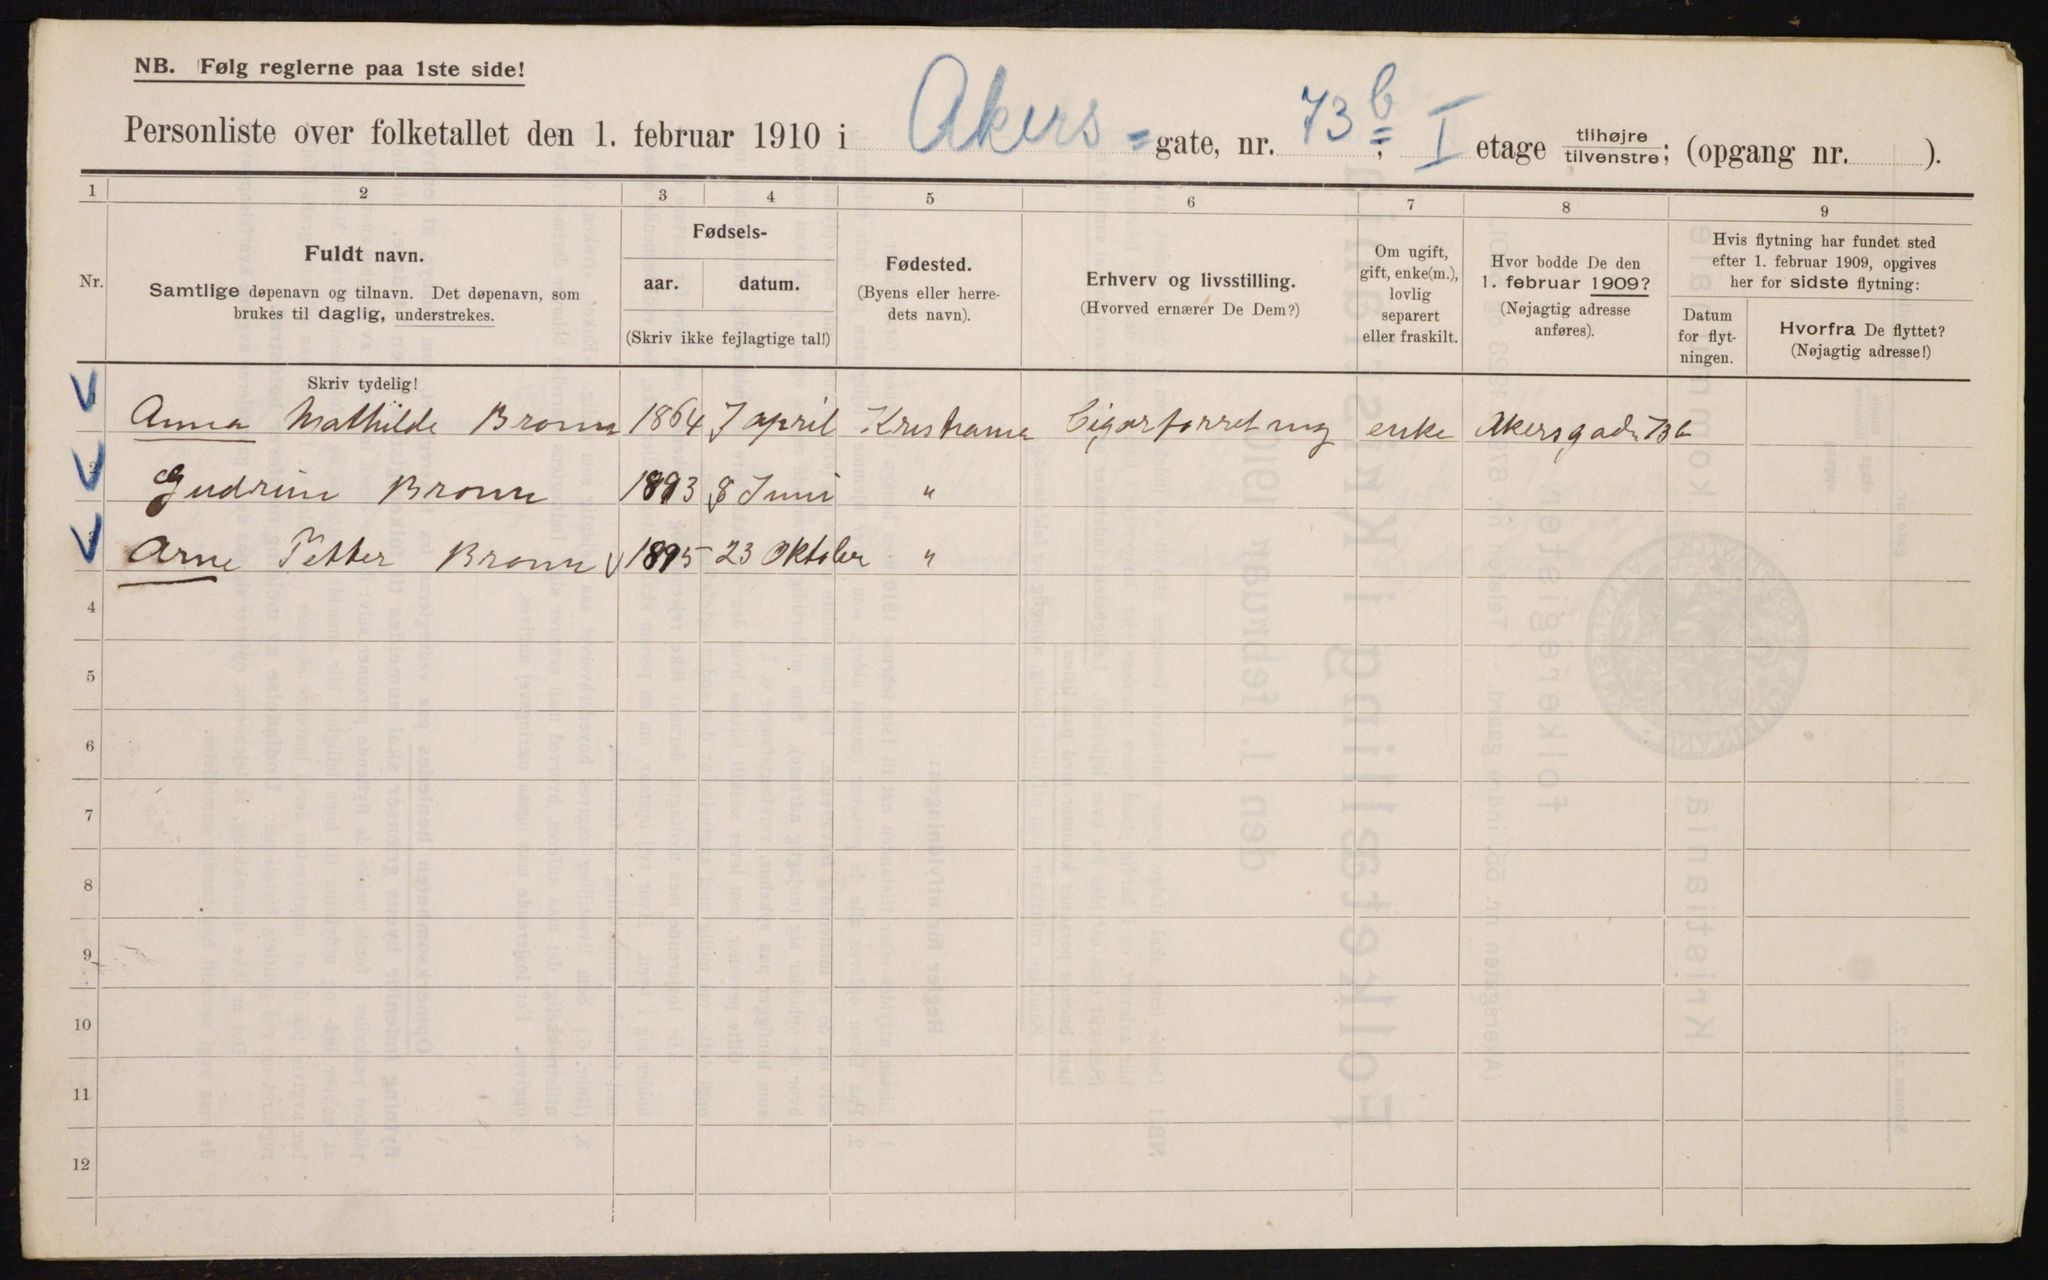 NB. Følg reglerne paa 1ste side!
Personliste over folketallet den 1. februar 1910 i Akers = gate, nr. 73 b, I etage tilhøjre/tilvenstre; (opgang nr. ).
1 2 3 4 5 6 7 8 9
Nr.
Fuldt navn.
Samtlige døpenavn og tilnavn. Det døpenavn, som
brukes til daglig, understrekes.
Skriv tydelig!
Fødsels-
aar. datum.
(Skriv ikke fejlagtige tal!)
Fødested.
(Byens eller herre-
dets navn).
Erhverv og livsstilling.
(Hvorved ernærer De Dem?)
Om ugift,
gift, enke(m.),
lovlig
separert
eller fraskilt.
Hvor bodde De den
1. februar 1909?
(Nøjagtig adresse
anføres).
Hvis flytning har fundet sted
efter 1. februar 1909, opgives
her for sidste flytning:
Datum
for flyt-
ningen.
Hvorfra De flyttet?
(Nøjagtig adresse!)
Anna Mathilde 1864 7 april Kristiania Cigarforretning enke Akersgade 73b
2 Gudrun 1893 8 Juni "
3 Arne Petter 1895 23 Oktober "
4
5
6
7
8
9
10
11
12